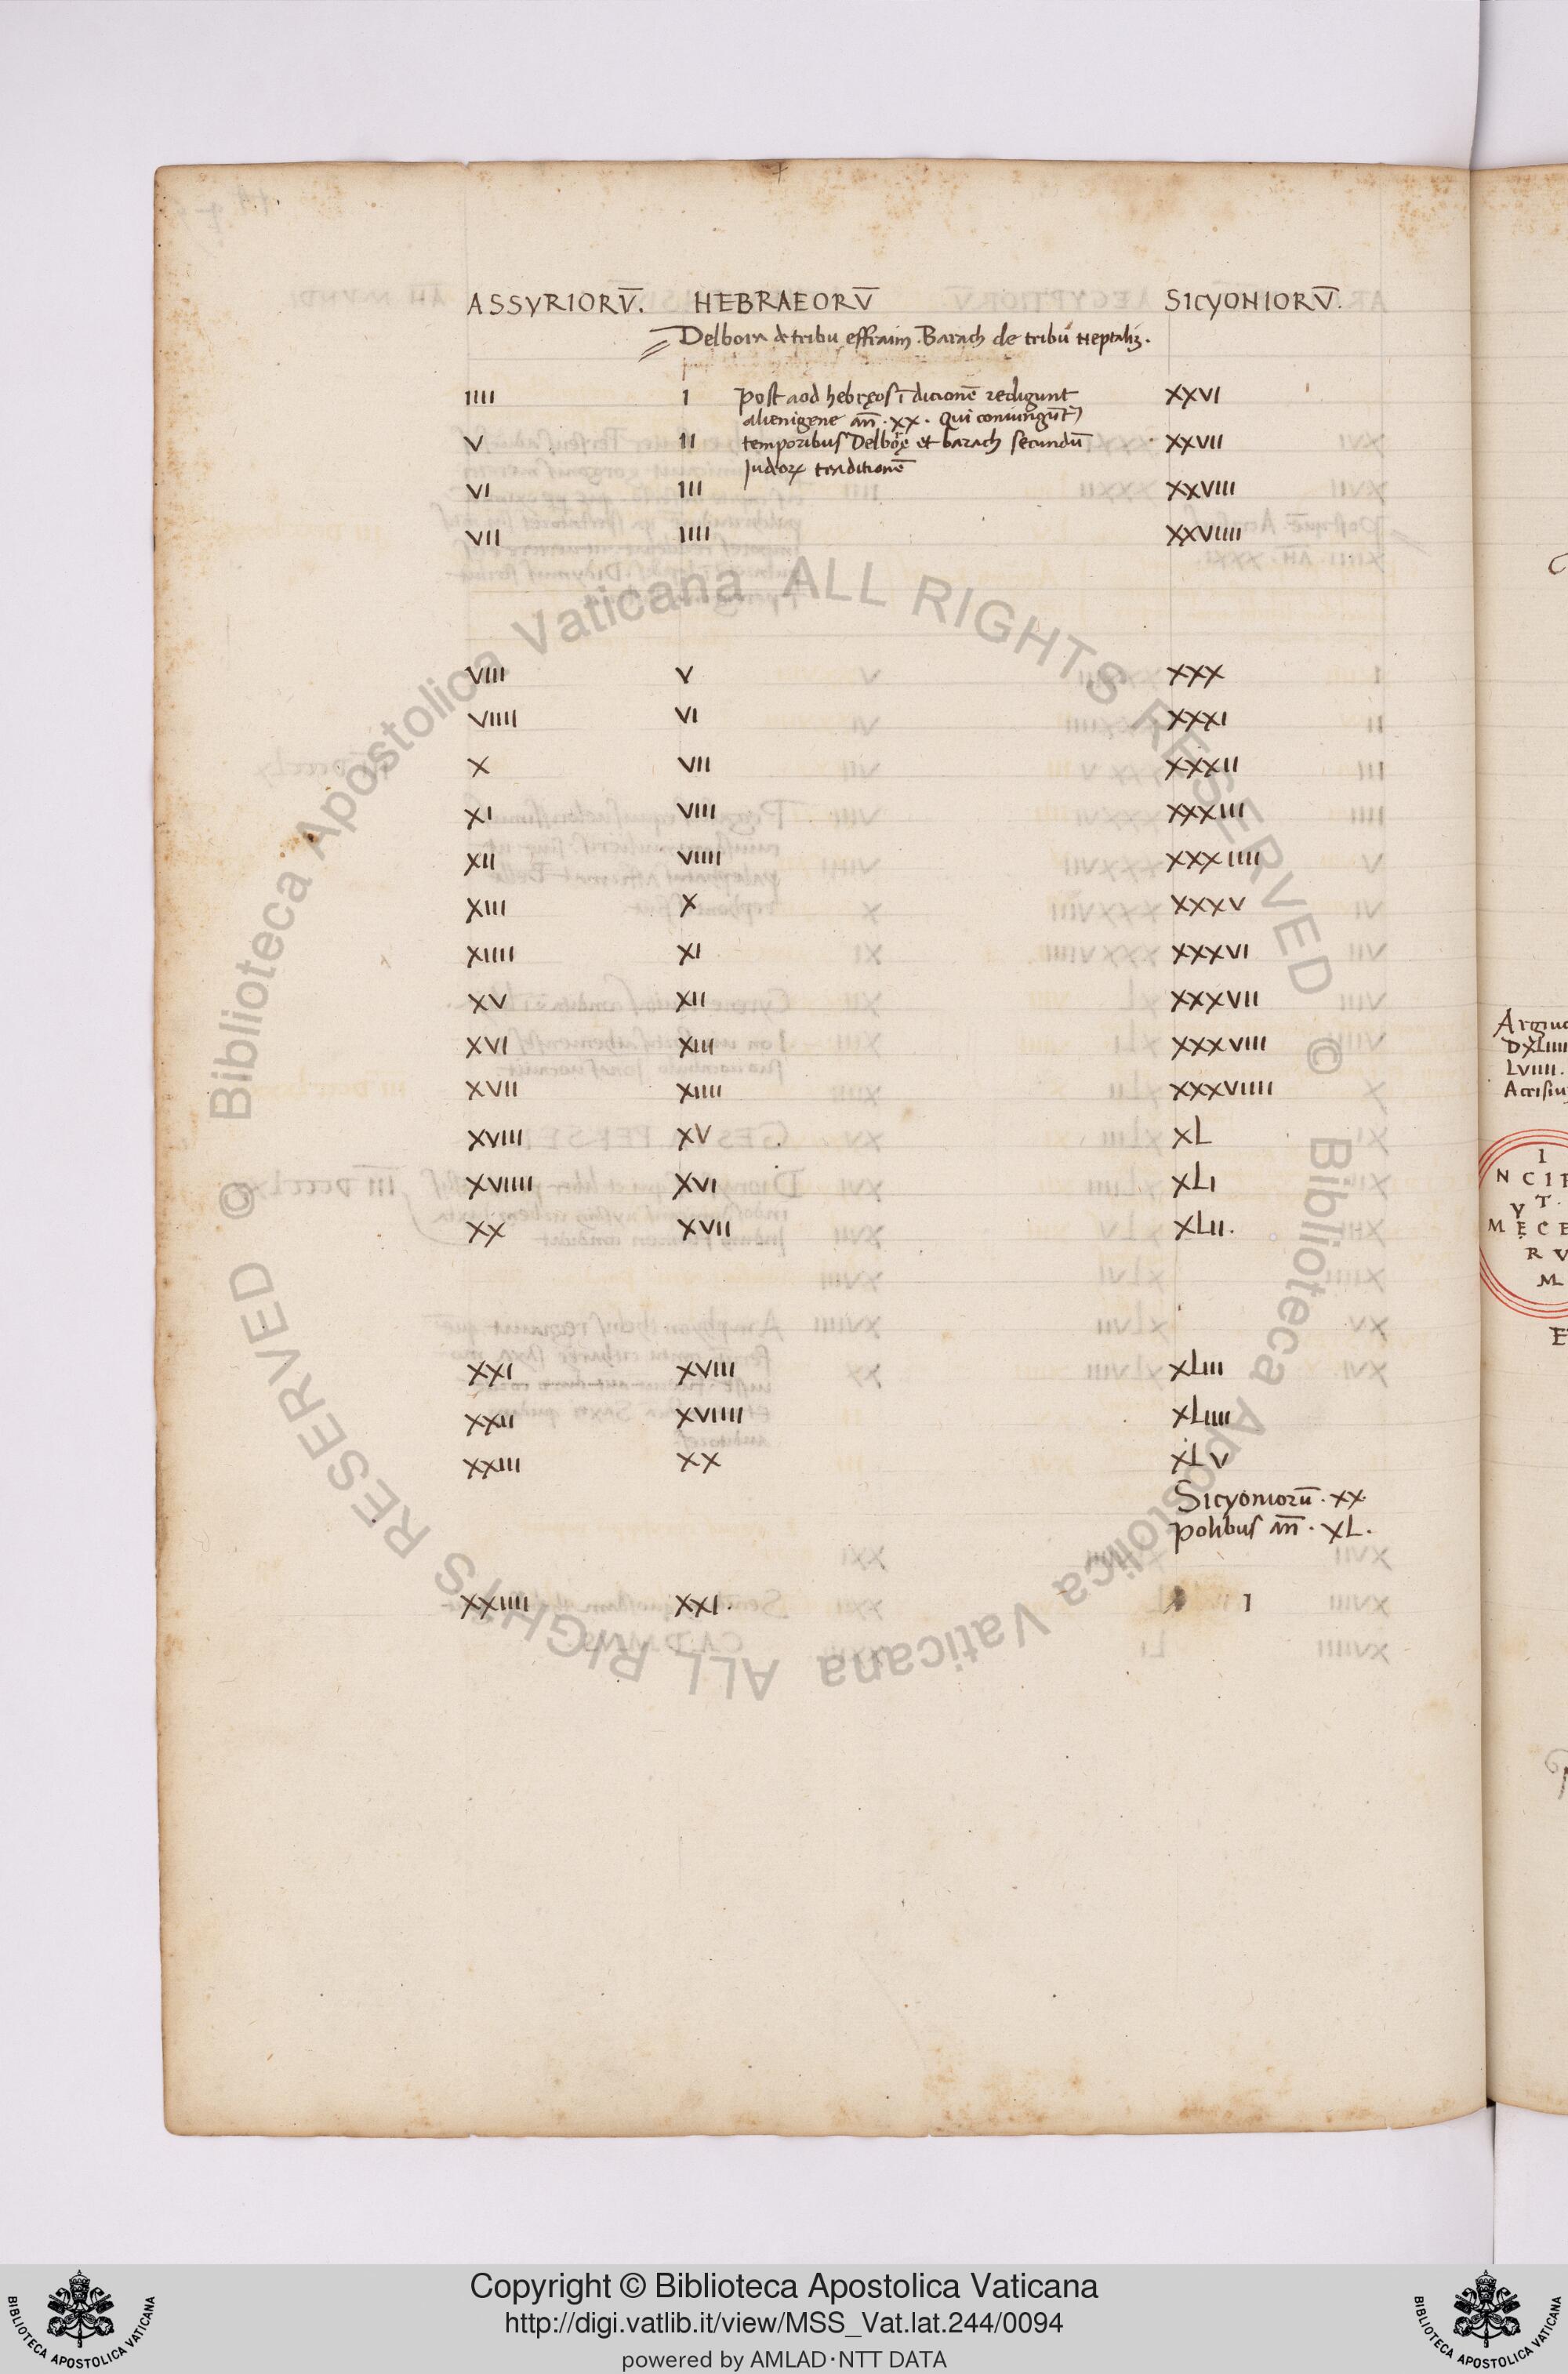 ASSYRIORV̅. HEBRAEORV̅ SICYONIORV̅.
Delbora de tribu effraim. Barach de tribu Neptalim.
IIII I post aod hebręos ī dicionē redigunt XXVI
alienigene an̄. XX. Qui coniungūt᷑
V II temporibus Delborę et barach secundū XXVII
Judeoꝝ traditionē
VI III XXVIII
VII IIII XXVIIII
VIII V XXX
VIIII VI XXXI
X VII XXXII
XI VIII XXXIII
XII VIIII XXXIIII
XIII X XXXV
XIIII XI XXXVI
XV XII XXXVII
XVI XIII XXXVIII
XVII XIIII XXXVIIII
XVIII XV XL
XVIIII XVI XLI
XX XVII XLII.
XXI XVIII XLIII
XXII XVIIII XLIIII
XXIII XX XLV
Sicyoniorū. XX.
polibus an̄. XL.
XXIIII XXI. I
DXLIIII
LVIIII.
I
NCIP
VT.
MĘCE
RV
M
© Biblioteca Apostolica Vaticana ALL RIGHTS RESERVED
© Biblioteca Apostolica Vaticana ALL RIGHTS RESERVED
Copyright © Biblioteca Apostolica Vaticana
http://digi.vatlib.it/view/MSS_Vat.lat.244/0094
powered by AMLAD·NTT DATA
BIBLIOTECA APOSTOLICA VATICANA
BIBLIOTECA APOSTOLICA VATICANA